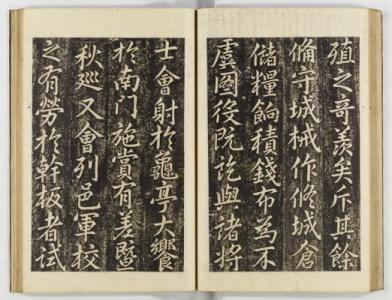 殖之哥羨矣斥其餘
俻守城械作脩城倉
儲糧餉積錢布為不
虞國役既訖與諸將
士會射於龜亭大饗
於南门施賞有差曁
秋廵又會列邑軍校
之有勞於幹板者試